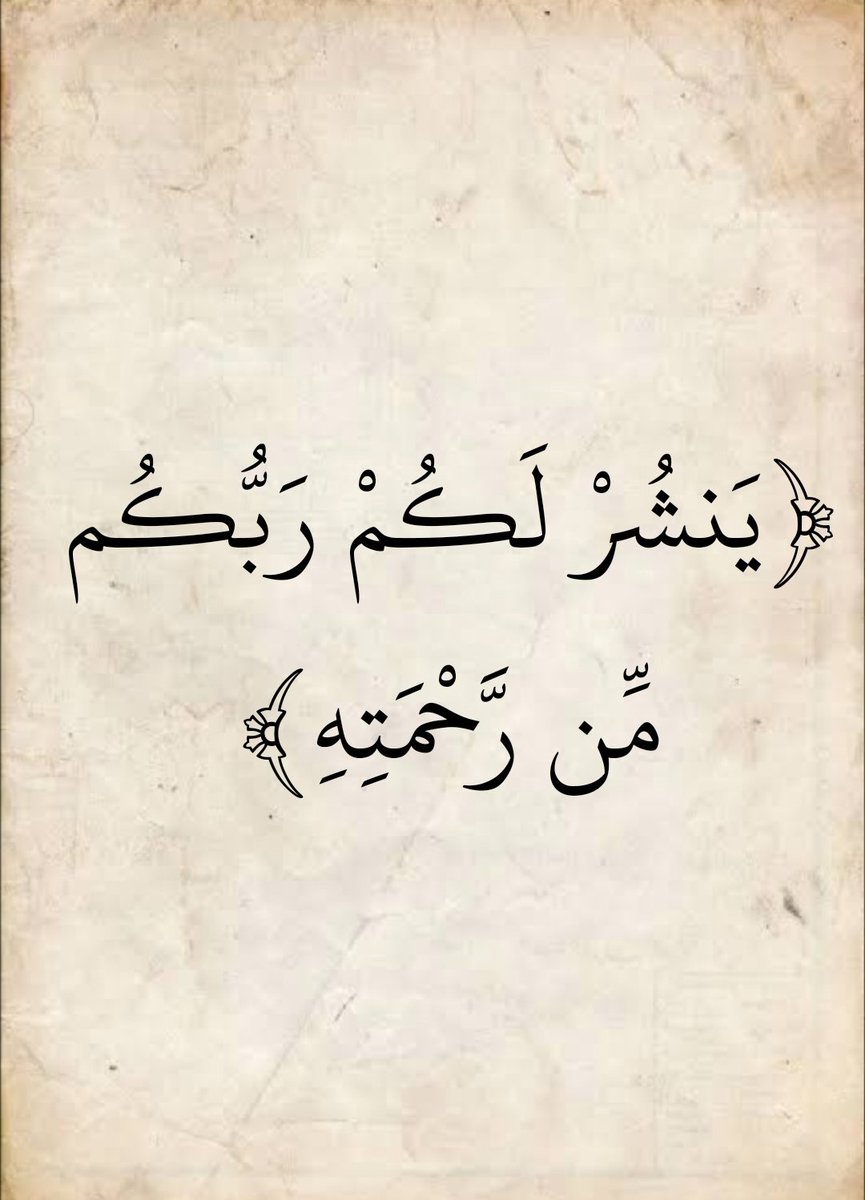 ﴿يَنشُرْ لَكُمْ رَبُّكُم
مِّن رَّحْمَتِهِ﴾